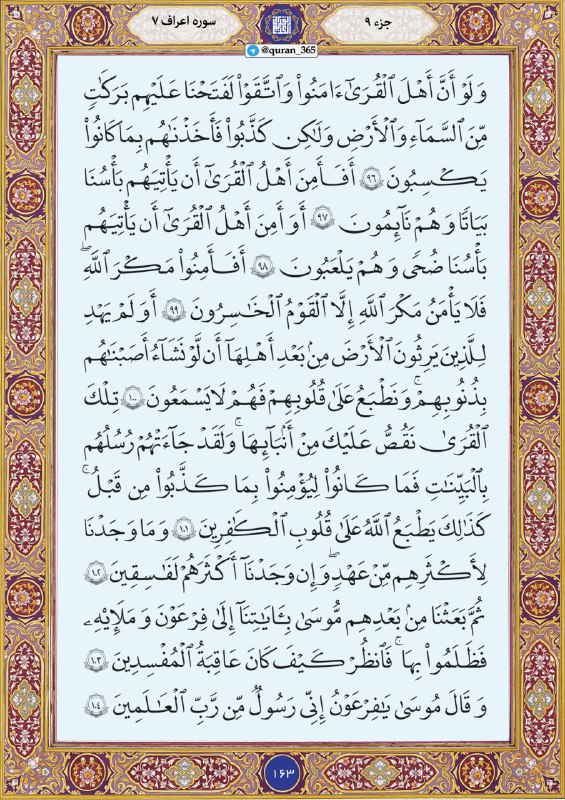 جزء ۹
@quran_365
سوره اعراف ۷
وَلَوْ أَنَّ أَهْلَ ٱلْقُرَىٰٓ ءَامَنُوا۟ وَٱتَّقَوْا۟ لَفَتَحْنَا عَلَيْهِم بَرَكَٰتٍ
مِّنَ ٱلسَّمَآءِ وَٱلْأَرْضِ وَلَٰكِن كَذَّبُوا۟ فَأَخَذْنَٰهُم بِمَا كَانُوا۟
يَكْسِبُونَ ۹۶ أَفَأَمِنَ أَهْلُ ٱلْقُرَىٰٓ أَن يَأْتِيَهُم بَأْسُنَا
بَيَٰتًا وَهُمْ نَآئِمُونَ ۹۷ أَوَأَمِنَ أَهْلُ ٱلْقُرَىٰٓ أَن يَأْتِيَهُم
بَأْسُنَا ضُحًى وَهُمْ يَلْعَبُونَ ۹۸ أَفَأَمِنُوا۟ مَكْرَ ٱللَّهِ ۚ
فَلَا يَأْمَنُ مَكْرَ ٱللَّهِ إِلَّا ٱلْقَوْمُ ٱلْخَٰسِرُونَ ۹۹ أَوَلَمْ يَهْدِ
لِلَّذِينَ يَرِثُونَ ٱلْأَرْضَ مِنۢ بَعْدِ أَهْلِهَآ أَن لَّوْ نَشَآءُ أَصَبْنَٰهُم
بِذُنُوبِهِمْ ۚ وَنَطْبَعُ عَلَىٰ قُلُوبِهِمْ فَهُمْ لَا يَسْمَعُونَ ۱۰۰ تِلْكَ
ٱلْقُرَىٰ نَقُصُّ عَلَيْكَ مِنْ أَنۢبَآئِهَا ۚ وَلَقَدْ جَآءَتْهُمْ رُسُلُهُم
بِٱلْبَيِّنَٰتِ فَمَا كَانُوا۟ لِيُؤْمِنُوا۟ بِمَا كَذَّبُوا۟ مِن قَبْلُ ۚ
كَذَٰلِكَ يَطْبَعُ ٱللَّهُ عَلَىٰ قُلُوبِ ٱلْكَٰفِرِينَ ۱۰۱ وَمَا وَجَدْنَا
لِأَكْثَرِهِم مِّنْ عَهْدٍ ۖ وَإِن وَجَدْنَآ أَكْثَرَهُمْ لَفَٰسِقِينَ ۱۰۲
ثُمَّ بَعَثْنَا مِنۢ بَعْدِهِم مُّوسَىٰ بِـَٔايَٰتِنَآ إِلَىٰ فِرْعَوْنَ وَمَلَإِيْهِۦ
فَظَلَمُوا۟ بِهَا ۖ فَٱنظُرْ كَيْفَ كَانَ عَٰقِبَةُ ٱلْمُفْسِدِينَ ۱۰۳
وَقَالَ مُوسَىٰ يَٰفِرْعَوْنُ إِنِّى رَسُولٌ مِّن رَّبِّ ٱلْعَٰلَمِينَ ۱۰۴
۱۶۳